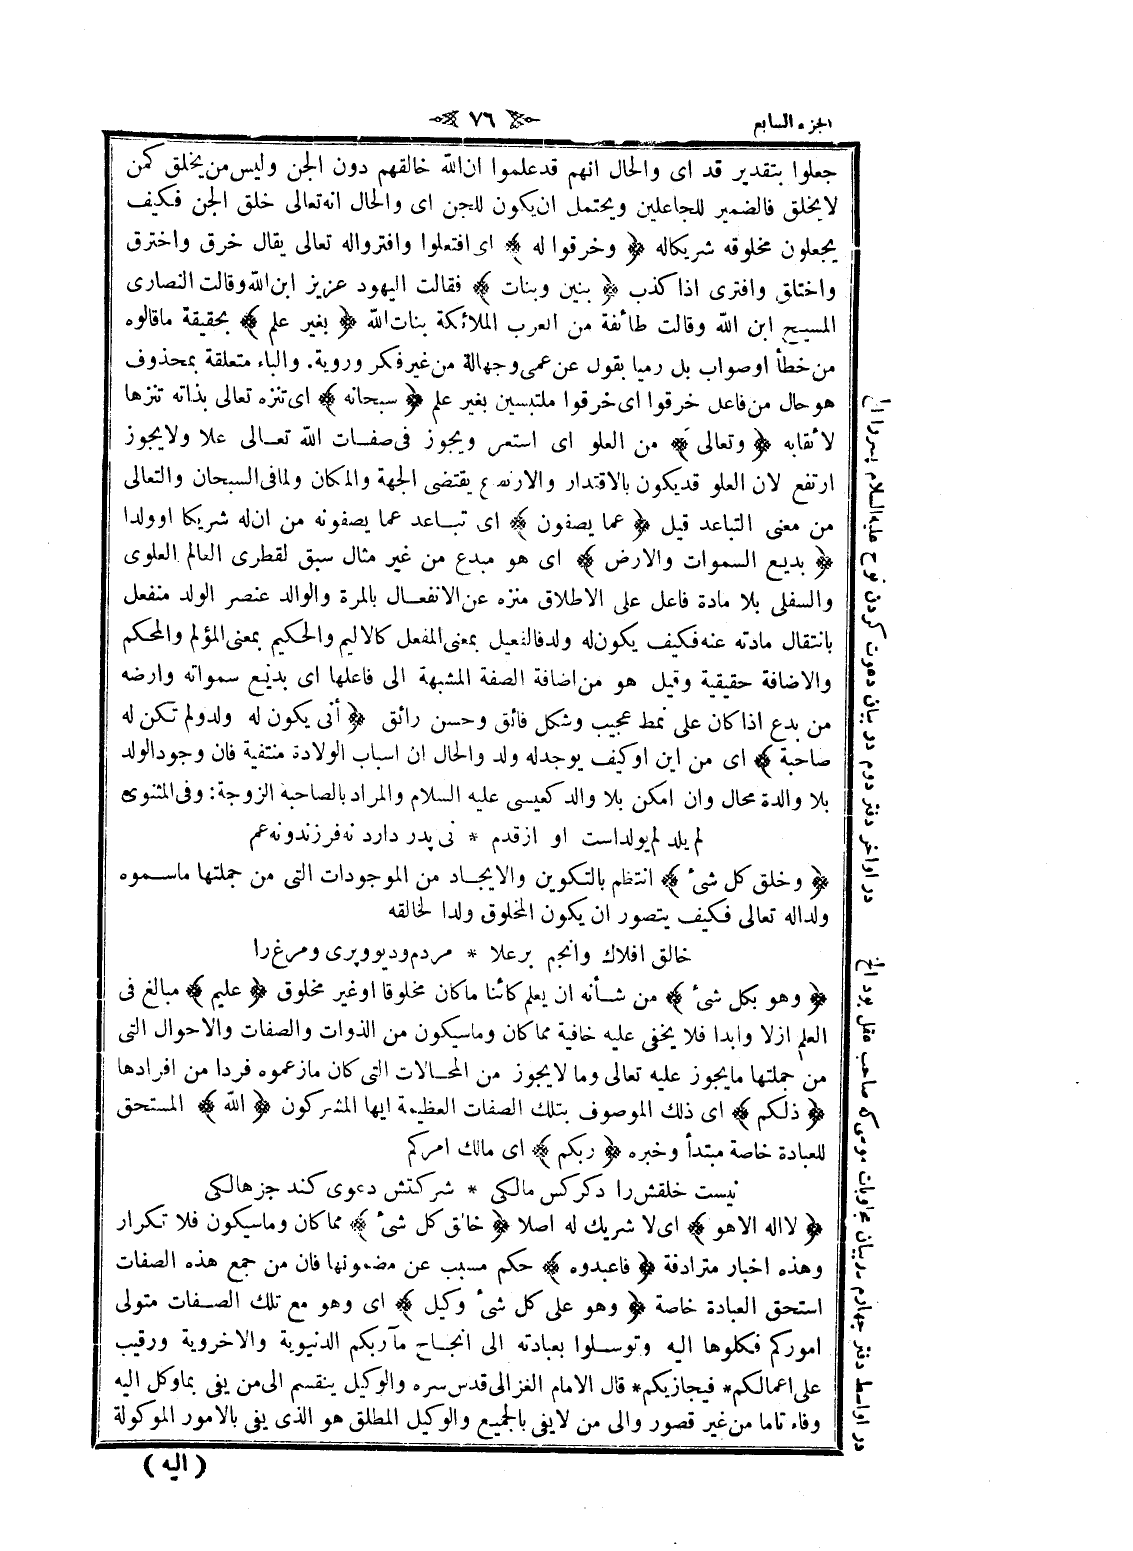 الجزء السابع
٧٦
جعلوا بتقدير قد اى والحال انهم قدعلموا ان الله خالقهم دون الجن وليس من يخلق كمن
لايخلق فالضمير للجاعلين ويحتمل ان يكون للجن اى والحال انه تعالى خلق الجن فكيف
يجعلون مخلوقه شريكاله ﴿ وخرقوا له ﴾ اى افتعلوا وافترواله تعالى يقال خرق واخترق
واختلق وافترى اذا كذب ﴿ بنين وبنات ﴾ فقالت اليهود عزيز ابن الله وقالت النصارى
المسيح ابن الله وقالت طائفة من العرب الملائكة بنات الله ﴿ بغير علم ﴾ بحقيقة ماقالوه
من خطأ اوصواب بل رميا بقول عن عمى وجهالة من غير فكر وروية. والباء متعلقة بمحذوف
هو حال من فاعل خرقوا اى خرقوا ملتبسين بغير علم ﴿ سبحانه ﴾ اى تنزه تعالى بذاته تنزها
لائقابه ﴿ وتعالى ﴾ من العلو اى استعر ويجوز فى صفات الله تعالى علا ولايجوز
ارتفع لان العلو قديكون بالاقتدار والارتفاع يقتضى الجهة والمكان ولمافى السبحان والتعالى
من معنى التباعد قيل ﴿ عما يصفون ﴾ اى تباعد عما يصفونه من ان له شريكا اوولدا
﴿ بديع السموات والارض ﴾ اى هو مبدع من غير مثال سبق لقطرى العالم العلوى
والسفلى بلا مادة فاعل على الاطلاق منزه عن الانفعال بالمرة والوالد عنصر الولد منفعل
بانتقال مادته عنه فكيف يكون له ولد فالفعيل بمعنى المفعل كالاليم والحكيم بمعنى المؤلم والمحكم
والاضافة حقيقية وقيل هو من اضافة الصفة المشبهة الى فاعلها اى بديع سمواته وارضه
من بدع اذا كان على نمط عجيب وشكل فائق وحسن رائق ﴿ أنى يكون له ولد ولم تكن له
صاحبة ﴾ اى من اين اوكيف يوجدله ولد والحال ان اسباب الولادة منتفية فان وجود الولد
بلا والدة محال وان امكن بلا والد كعيسى عليه السلام والمراد بالصاحبة الزوجة : وفى المثنوى
لم يلد لم يولد است او از قدم * نى پدر دارد نه فرزند ونه عم
﴿ وخلق كل شىء ﴾ انتظم بالتكوين والايجاد من الموجودات التى من جملتها ماسموه
ولداله تعالى فكيف يتصور ان يكون المخلوق ولدا لخالقه
خالق افلاك وانجم بر علا * مردم وديو وپرى ومرغ را
﴿ وهو بكل شىء ﴾ من شأنه ان يعلم كائنا ماكان مخلوقا اوغير مخلوق ﴿ عليم ﴾ مبالغ فى
العلم ازلا وابدا فلا يخفى عليه خافية مماكان وماسيكون من الذوات والصفات والاحوال التى
من جملتها مايجوز عليه تعالى وما لايجوز من المحالات التى كان مازعموه فردا من افرادها
﴿ ذلكم ﴾ اى ذلك الموصوف بتلك الصفات العظيمة ايها المشركون ﴿ الله ﴾ المستحق
للعبادة خاصة مبتدأ وخبره ﴿ ربكم ﴾ اى مالك امركم
نيست خلقش را دكر كس مالكى * شركتش دعوى كند جز هالكى
﴿ لااله الاهو ﴾ اى لا شريك له اصلا ﴿ خالق كل شىء ﴾ مماكان وماسيكون فلا تكرار
وهذه اخبار مترادفة ﴿ فاعبدوه ﴾ حكم مسبب عن مضمونها فان من جمع هذه الصفات
استحق العبادة خاصة ﴿ وهو على كل شىء وكيل ﴾ اى وهو مع تلك الصفات متولى
اموركم فكلوها اليه وتوسلوا بعبادته الى انجاح مآربكم الدنيوية والاخروية ورقيب
على اعمالكم* فيجازيكم* قال الامام الغزالى قدس سره والوكيل ينقسم الى من يفى بماوكل اليه
وفاء تاما من غير قصور والى من لايفى بالجميع والوكيل المطلق هو الذى يفى بالامور الموكولة
( اليه )
در اواخر دفتر دوم در بيان دعوت كردن نوح عليه السلام پسر را الخ
در اواسط دفتر چهارم در بيان مجاوبات موسى كه صاحب عقل بود الخ